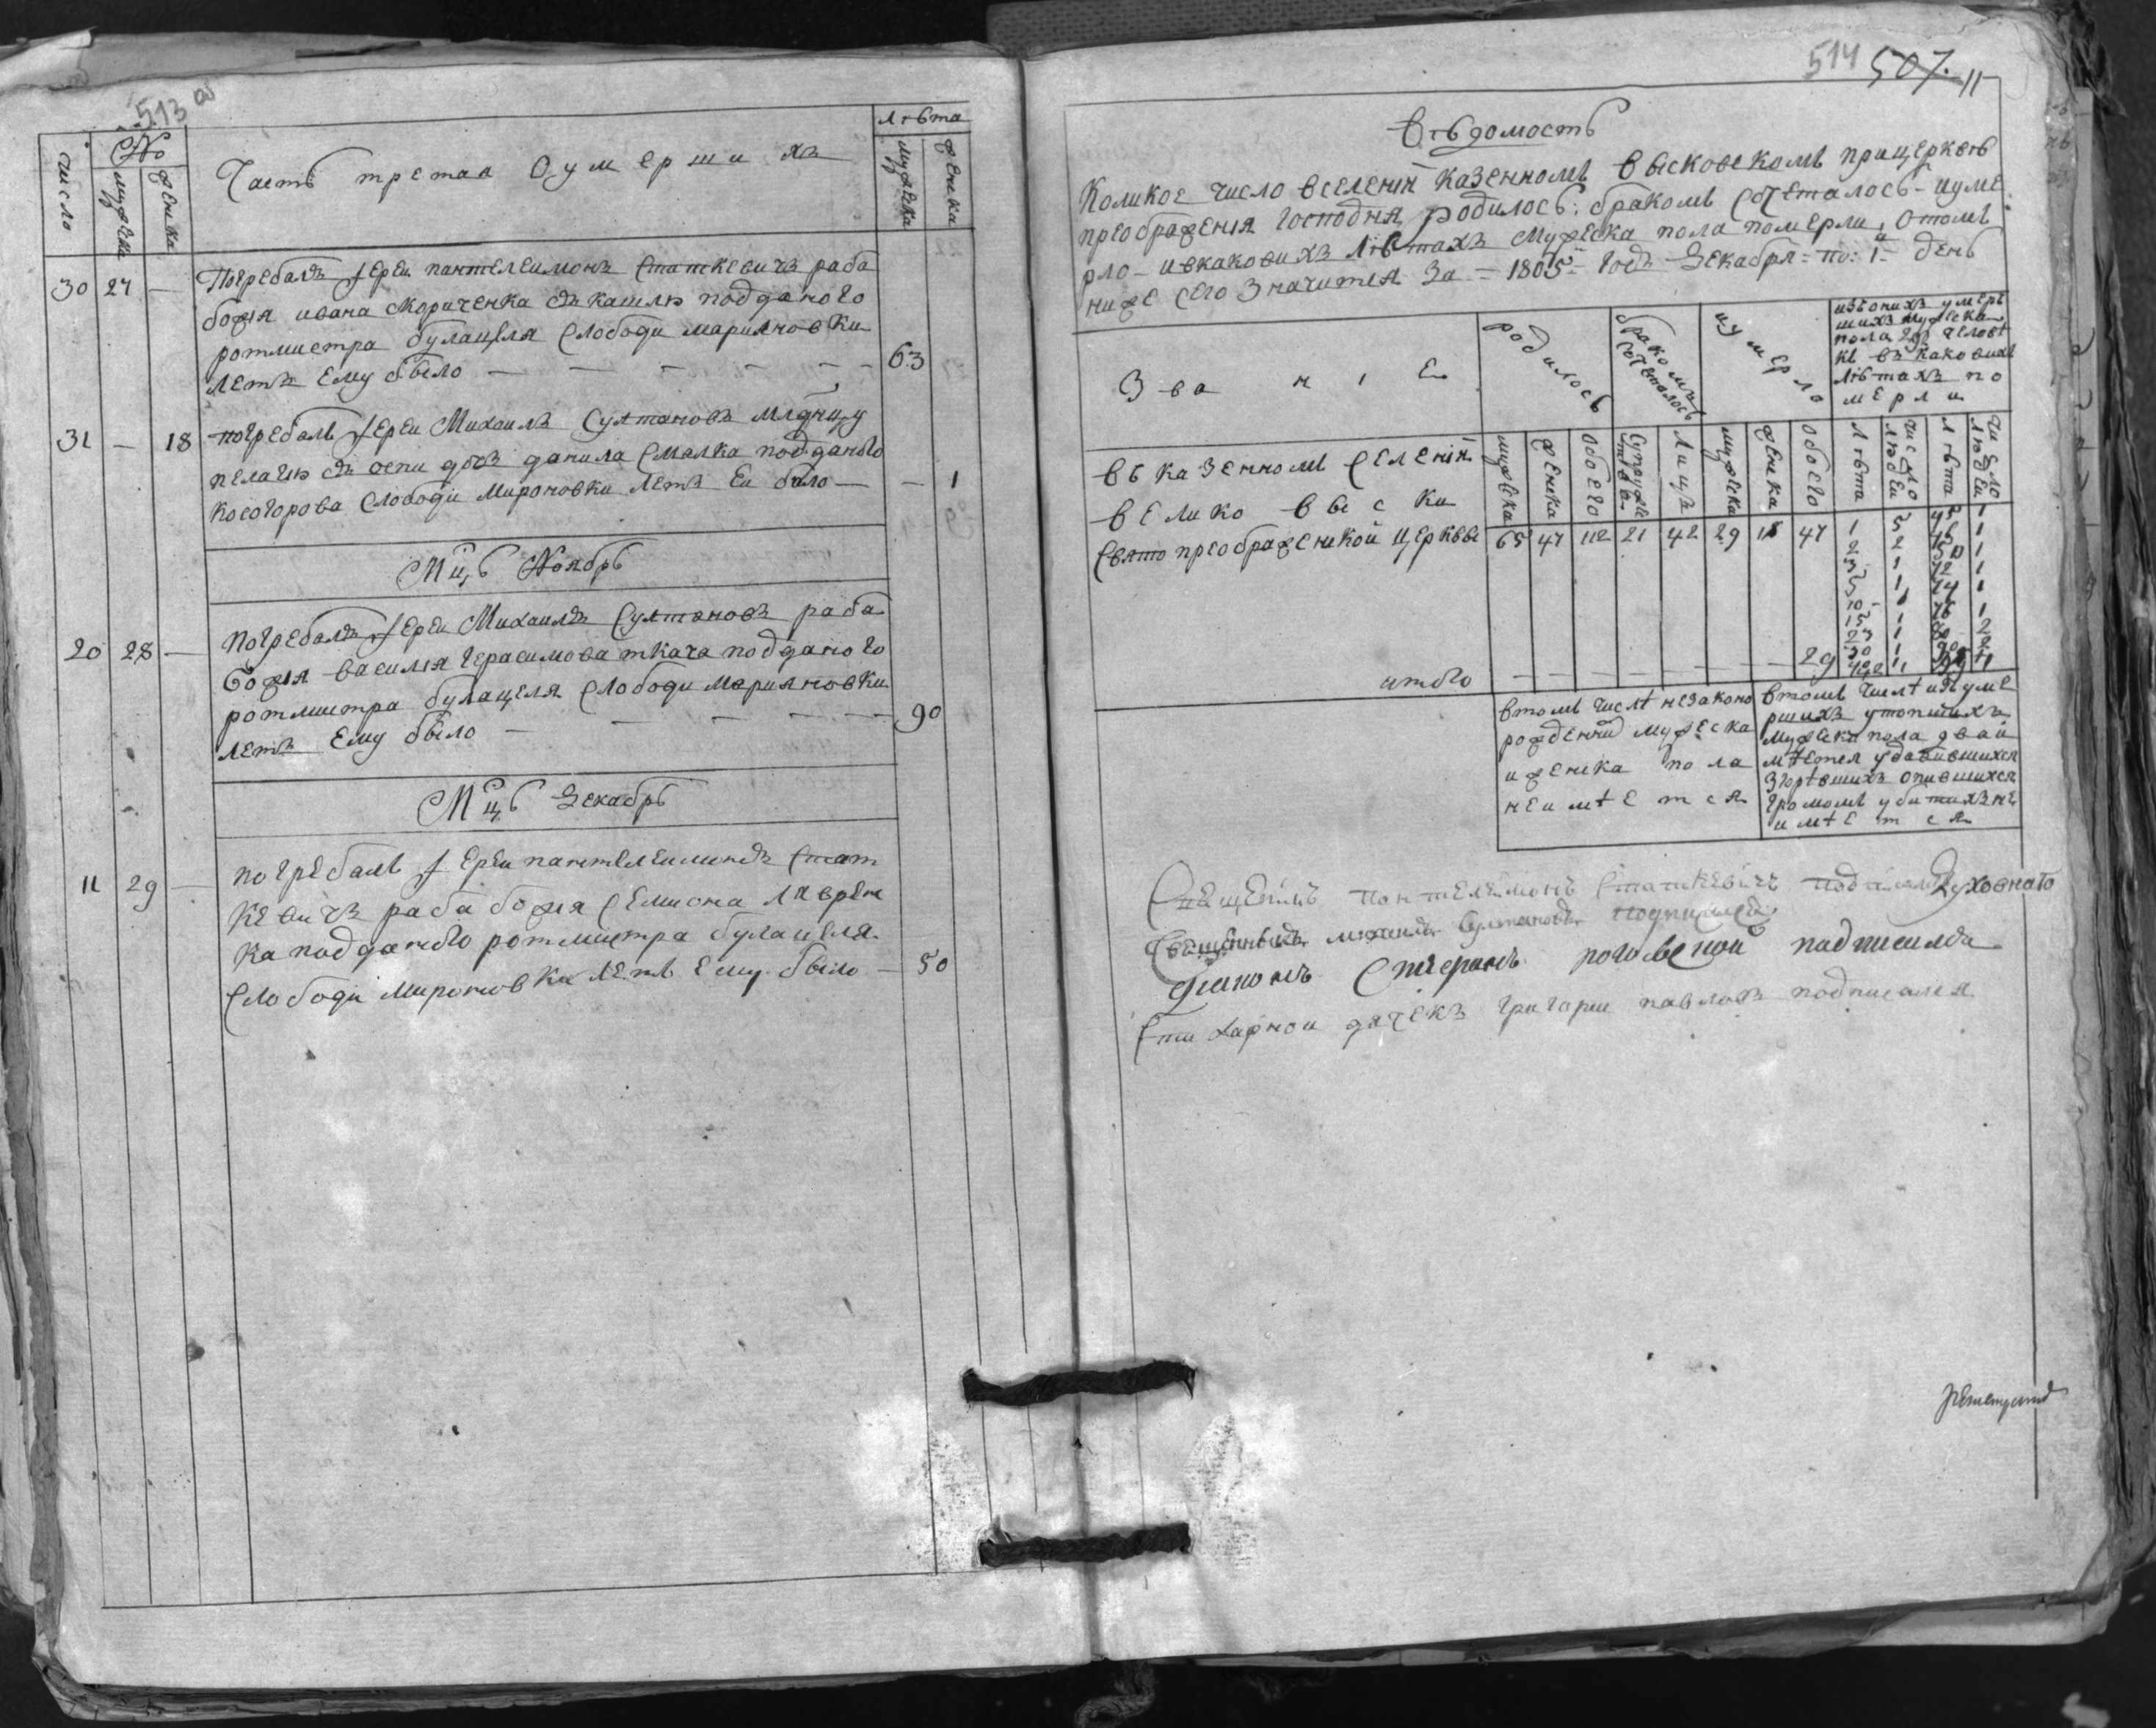 513 об
число
№
мужеска
женска
Часть третая оумерши хъ
лѣта
мужеска
женска
30 27 — Погребалъ іереи пантелеимонъ Статкевичъ раба
божія ивана Моричтенка съ кашлю подданого
ротмистра булацеля Слободи мариановки
летъ ему было — — — — — 63
31 — 18 погребалъ іереи Михаилъ Султановъ млднцу
пелагию съ оспи дочь данила Смалка подданого
косогорова Слободи Мироновки летъ еи было — — 1
Мцъ Ноябрь
20 28 — Погребалъ іереи Михаилъ Султановъ раба
божія василия герасимова ткача подданого
ротмистра булацеля Слободи мариановки
летъ ему было — — — — — 90
Мцъ Декабрь
11 29 — погребалъ іереи пантелеимонъ Стат
кевичъ раба божия Семиона Лаврен
ка подданого ротмистра булацеля
Слободи мироновки летъ ему было — 50
514 507. 11
Вѣдомость
Коликое число вселеніи казенномъ высковскомъ прицерквѣ
преображенія господня родилось: бракомъ Сочеталось — иуме
рло — ивкаковихъ Лѣтахъ Мужеска пола померли, отомъ
ниже Сего Значится За — 1805 — годъ Декабря — по: 1й — день
Зва н і е
родилось
бракомъ Сочеталось
иумерло
изъонихъ умерь
шихъ мужеска
пола 29 человѣ
къ въ каковихъ
лѣтахъ по
мерли
мужеска
женска
обоего
Супруже
ствъ
Лицъ
мужеска
женска
обоего
Лѣта
число
людеи
лѣта
число
людеи
въ казенномъ Селеніи
велико выски
Свято преображенской церквѣ 65 47 112 21 42 29 18 47
итого — — — — — — — 29
втомъ числѣ незаконо
рожденнй мужеска
иженска пола
неимѣется
втомъ числѣ изъуме
ршихъ утопшихъ
мужеска пола два и
мѣется удавившихся
Згорѣвшихъ опившихся
громомъ убитихъ не
имѣется
Священикъ Пантелеимонъ Статкевичъ подписалъ Духовнаго
Священникъ михаилъ Султановъ подписался
дияконъ Стефанъ подписался
Стихарнои дячекъ григории павловъ подписался